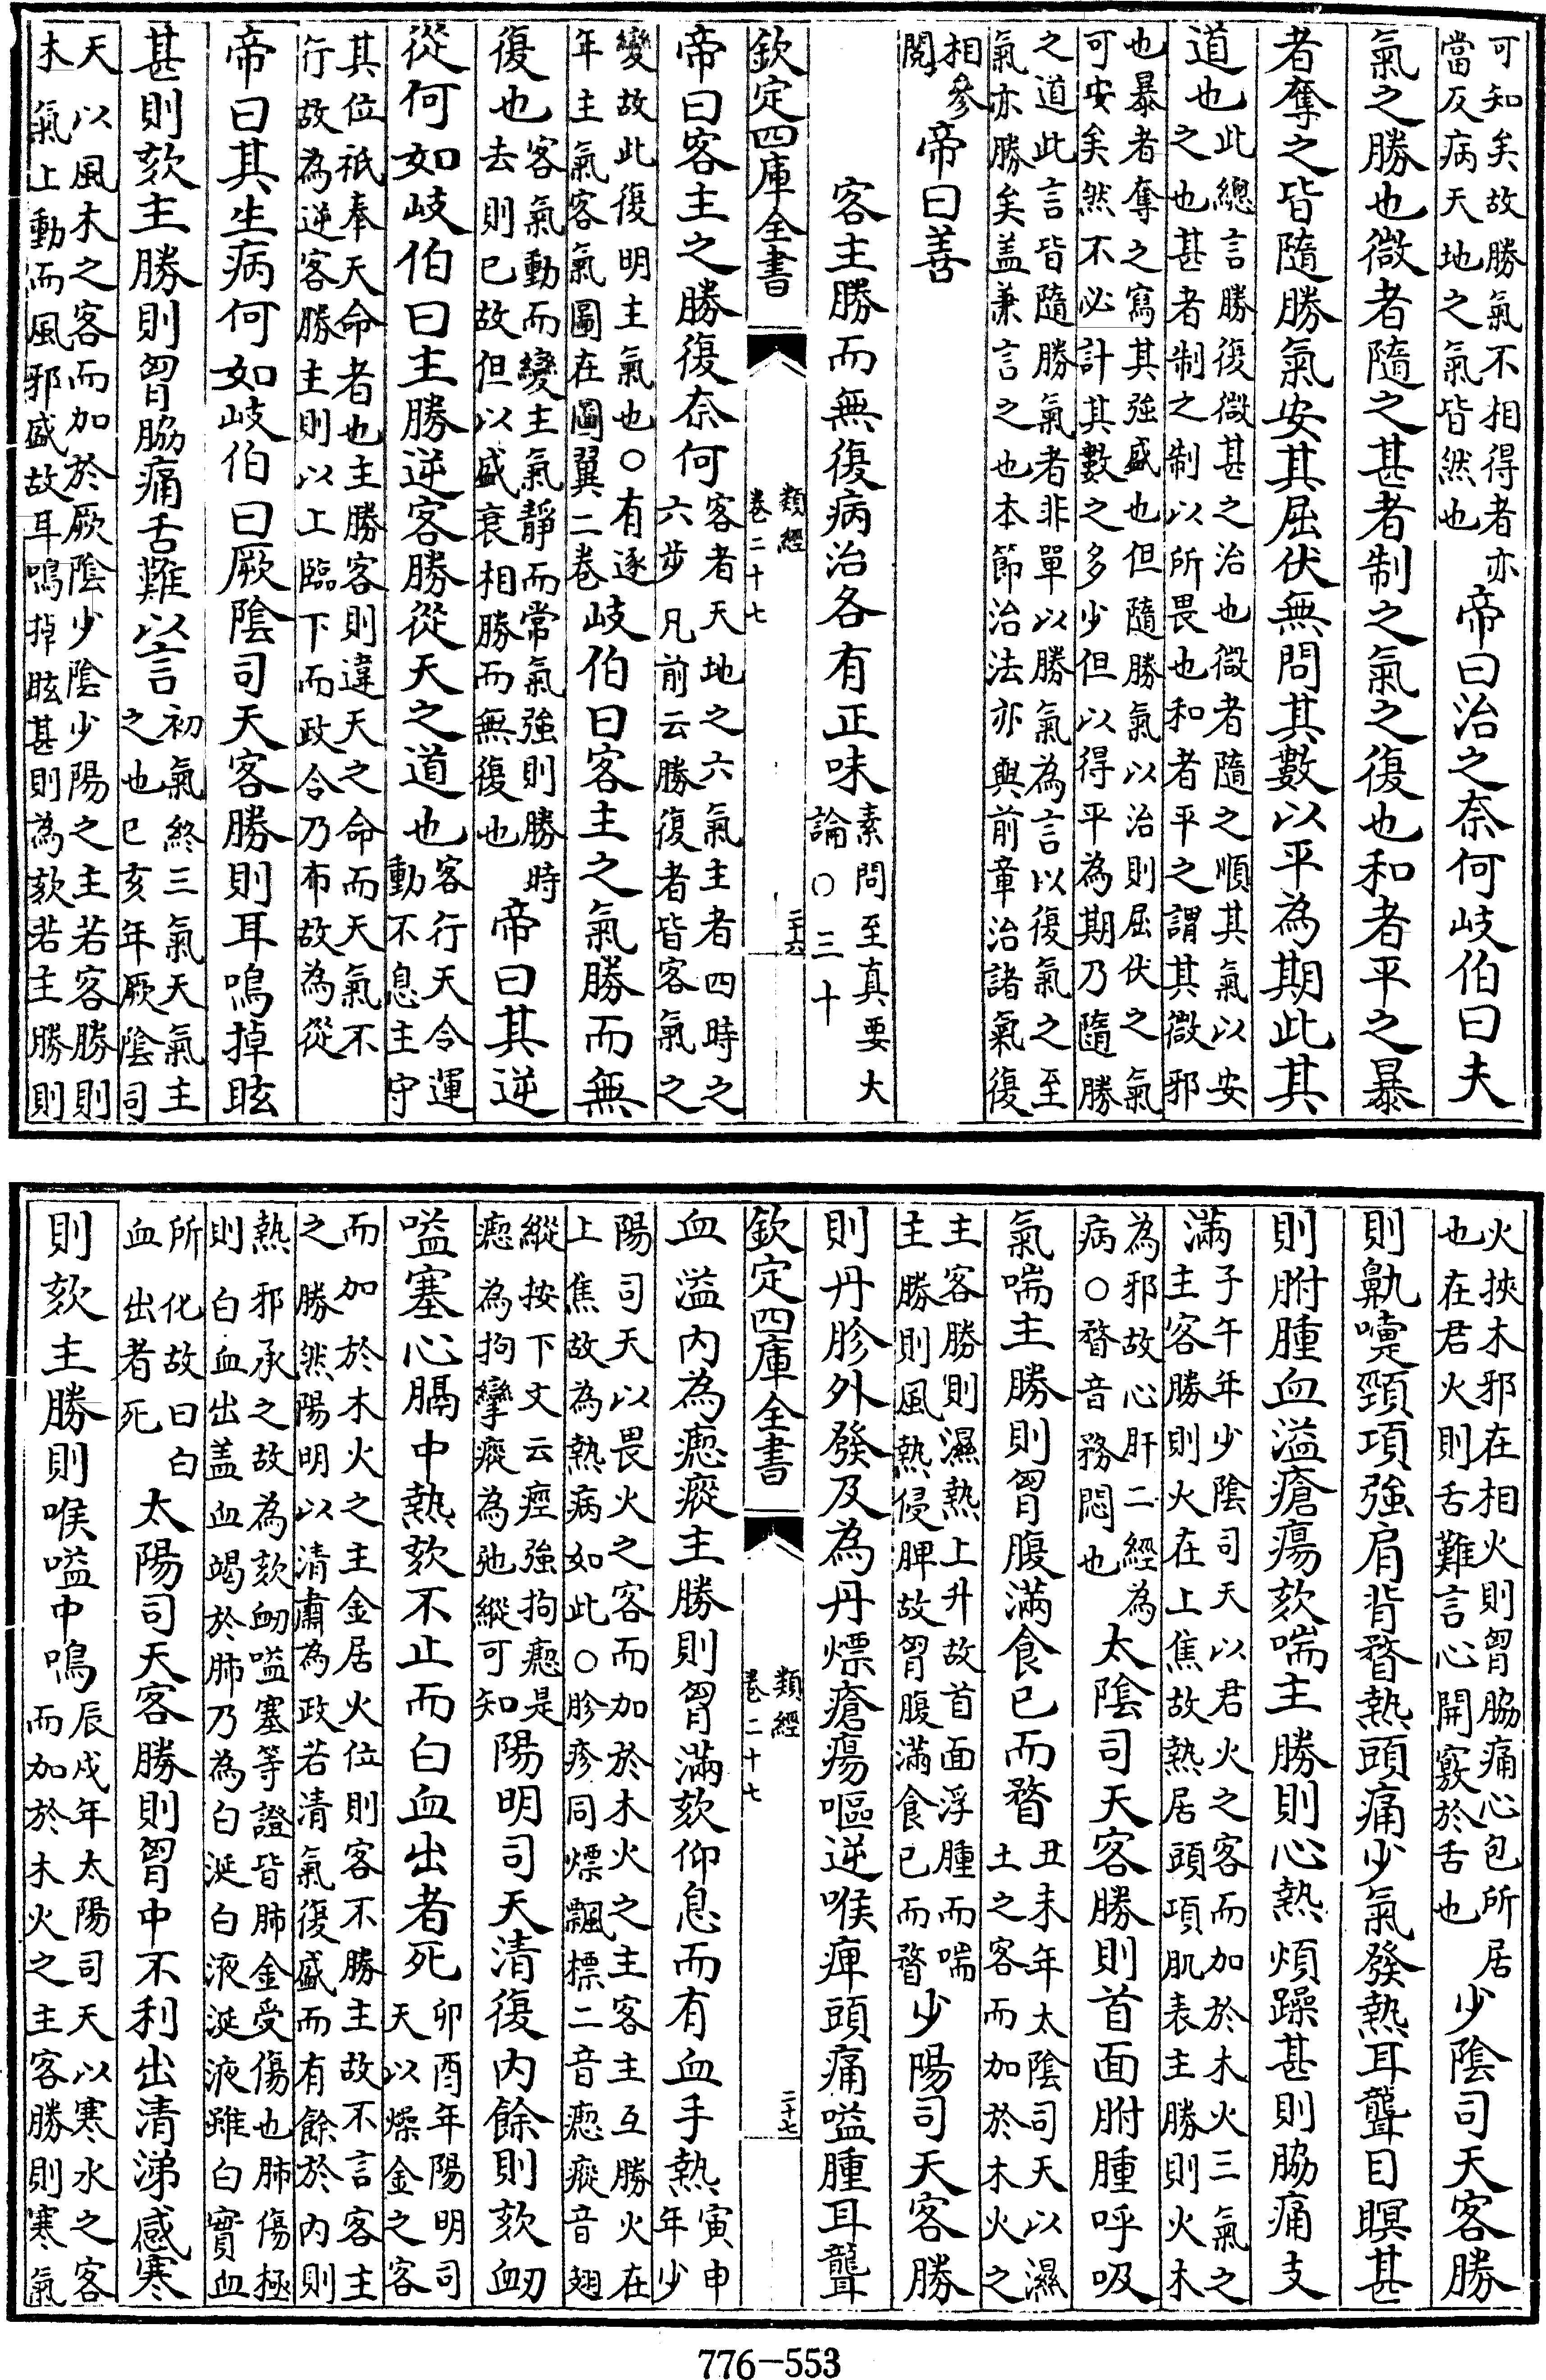 可知矣故勝氣不相得者亦
當反病天地之氣皆然也
帝曰治之奈何岐伯曰夫
氣之勝也微者隨之甚者制之氣之復也和者平之暴
者奪之皆隨勝氣安其屈伏無問其數以平為期此其
道也
此總言勝復微甚之治也微者隨之順其氣以安
之也甚者制之制以所畏也和者平之謂其微邪
也暴者奪之寫其強盛也但隨勝氣以治則屈伏之氣
可安矣然不必計其數之多少但以得平為期乃隨勝
之道此言皆隨勝氣者非單以勝氣為言以復氣之至
氣亦勝矣盖兼言之也本節治法亦與前章治諸氣復
相參
閱
帝曰善
客主勝而無復病治各有正味
素問至真要大
論○三十
欽定四庫全書
類經
卷二十七
二十六
帝曰客主之勝復奈何
客者天地之六氣主者四時之
六步凡前云勝復者皆客氣之
變故此復明主氣也○有逐
年主氣客氣圖在圖翼二卷
岐伯曰客主之氣勝而無
復也
客氣動而變主氣靜而常氣強則勝時
去則已故但以盛衰相勝而無復也
帝曰其逆
從何如岐伯曰主勝逆客勝從天之道也
客行天令運
動不息主守
其位祇奉天命者也主勝客則違天之命而天氣不
行故為逆客勝主則以上臨下而政令乃布故為從
帝曰其生病何如岐伯曰厥陰司天客勝則耳鳴掉眩
甚則欬主勝則胷脇痛舌難以言
初氣終三氣天氣主
之也巳亥年厥陰司
天以風木之客而加於厥陰少陰少陽之主若客勝則
木氣上動而風邪盛故耳鳴掉眩甚則為欬若主勝則
火挾木邪在相火則胷脇痛心包所居
也在君火則舌難言心開竅於舌也
少陰司天客勝
則鼽嚏頸項強肩背瞀熱頭痛少氣發熱耳聾目瞑甚
則胕腫血溢瘡瘍欬喘主勝則心熱煩躁甚則脇痛支
滿
子午年少陰司天以君火之客而加於木火三氣之
主客勝則火在上焦故熱居頭項肌表主勝則火木
為邪故心肝二經為
病○瞀音務悶也
太陰司天客勝則首面胕腫呼吸
氣喘主勝則胷腹滿食已而瞀
丑未年太陰司天以濕
土之客而加於木火之
主客勝則濕熱上升故首面浮腫而喘
主勝則風熱侵脾故胷腹滿食已而瞀
少陽司天客勝
則丹胗外發及為丹熛瘡瘍嘔逆喉痺頭痛嗌腫耳聾
欽定四庫全書
類經
卷二十七
二十七
血溢內為瘛瘲主勝則胷滿欬仰息而有血手熱
寅申
年少
陽司天以畏火之客而加於木火之主客主互勝火在
上焦故為熱病如此○胗疹同熛飄標二音瘛瘲音翅
縱按下文云痙強拘瘛是
瘛為拘攣瘲為弛縱可知
陽明司天清復內餘則欬衂
嗌塞心膈中熱欬不止而白血出者死
卯酉年陽明司
天以燥金之客
而加於木火之主金居火位則客不勝主故不言客主
之勝然陽明以清肅為政若清氣復盛而有餘於內則
熱邪承之故為欬衂嗌塞等證皆肺金受傷也肺傷極
則白血出盖血竭於肺乃為白涎白液涎液雖白實血
所化故曰白
血出者死
太陽司天客勝則胷中不利出清涕感寒
則欬主勝則喉嗌中鳴
辰戌年太陽司天以寒水之客
而加於木火之主客勝則寒氣
776-553